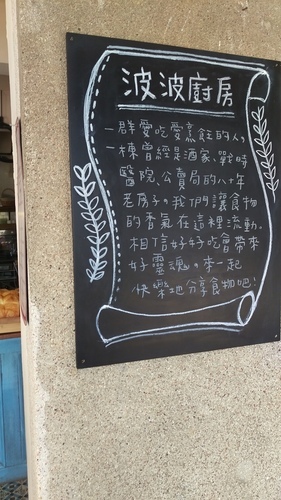 波波廚房
一群愛吃愛烹飪的人,
一棟曾經是酒家、戰時
醫院、公賣局的八十年
老房子。我們讓食物
的香氣在這裡流動。
相信好好吃會帶來
好靈魂。來一起
快樂地分享食物吧!